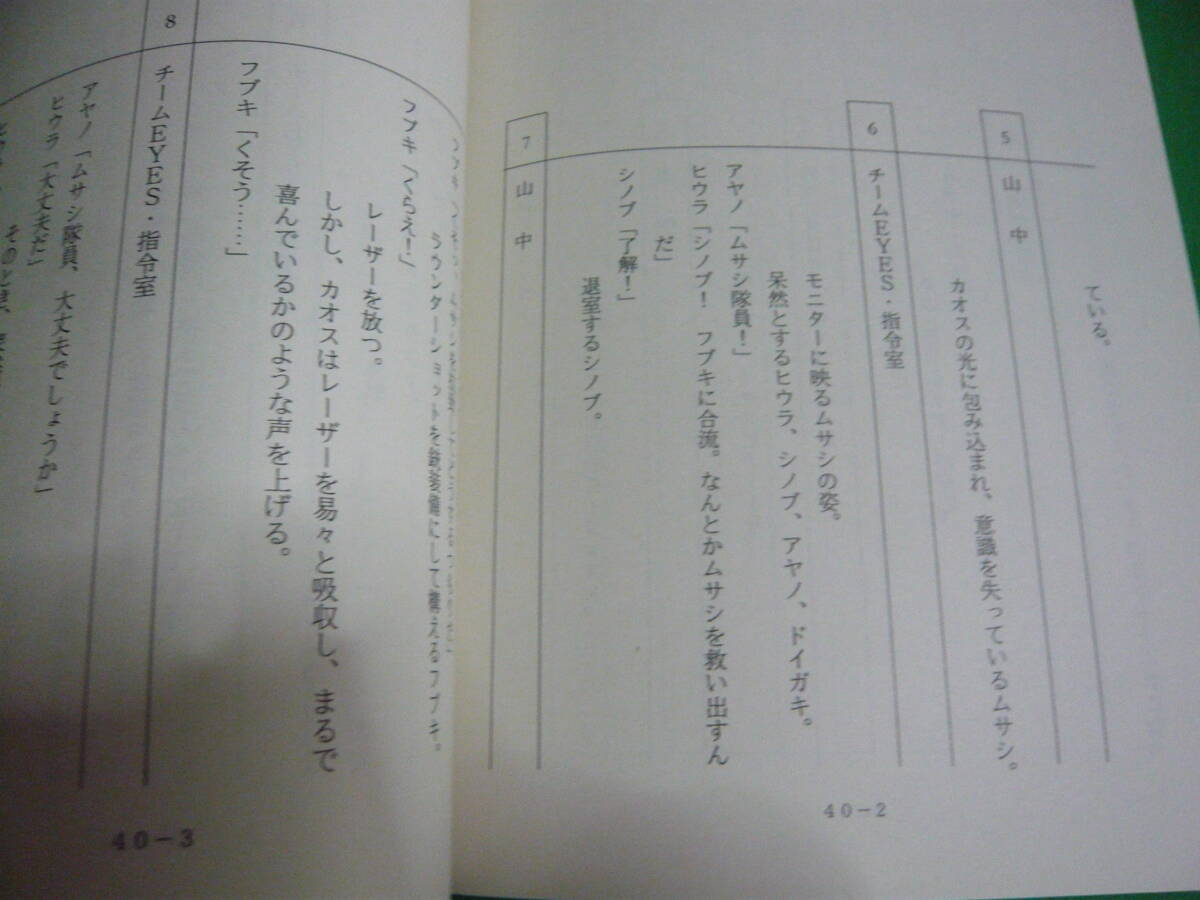 ている。
5
山中
カオスの光に包み込まれ、意識を失っているムサシ。
6
チームEYES・指令室
モニターに映るムサシの姿。
呆然とするヒウラ、シノブ、アヤノ、ドイガキ。
アヤノ「ムサシ隊員!」
ヒウラ「シノブ! フブキに合流。なんとかムサシを救い出すん
だ」
シノブ「了解!」
退室するシノブ。
7
山中
40-2
ラウンダーショットを銃装備にして構えるフブキ。
フブキ「くらえ!」
レーザーを放つ。
しかし、カオスはレーザーを易々と吸収し、まるで
喜んでいるかのような声を上げる。
フブキ「くそう……」
8
チームEYES・指令室
アヤノ「ムサシ隊員、大丈夫でしょうか」
ヒウラ「大丈夫だ」
そのとき、
40-3